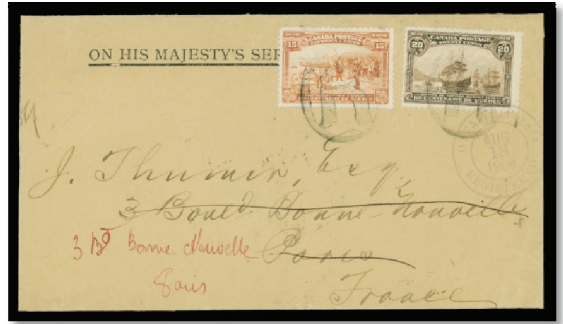 ON HIS MAJESTY'S SER
CANADA POSTAGE
15 15
CANADA POSTAGE
20 20
AUG
1908
REGIST
J. Thumin, Esq
3 Bould Bonne-Nouvelle
3 Bd Bonne Nouvelle
Paris
Paris
France